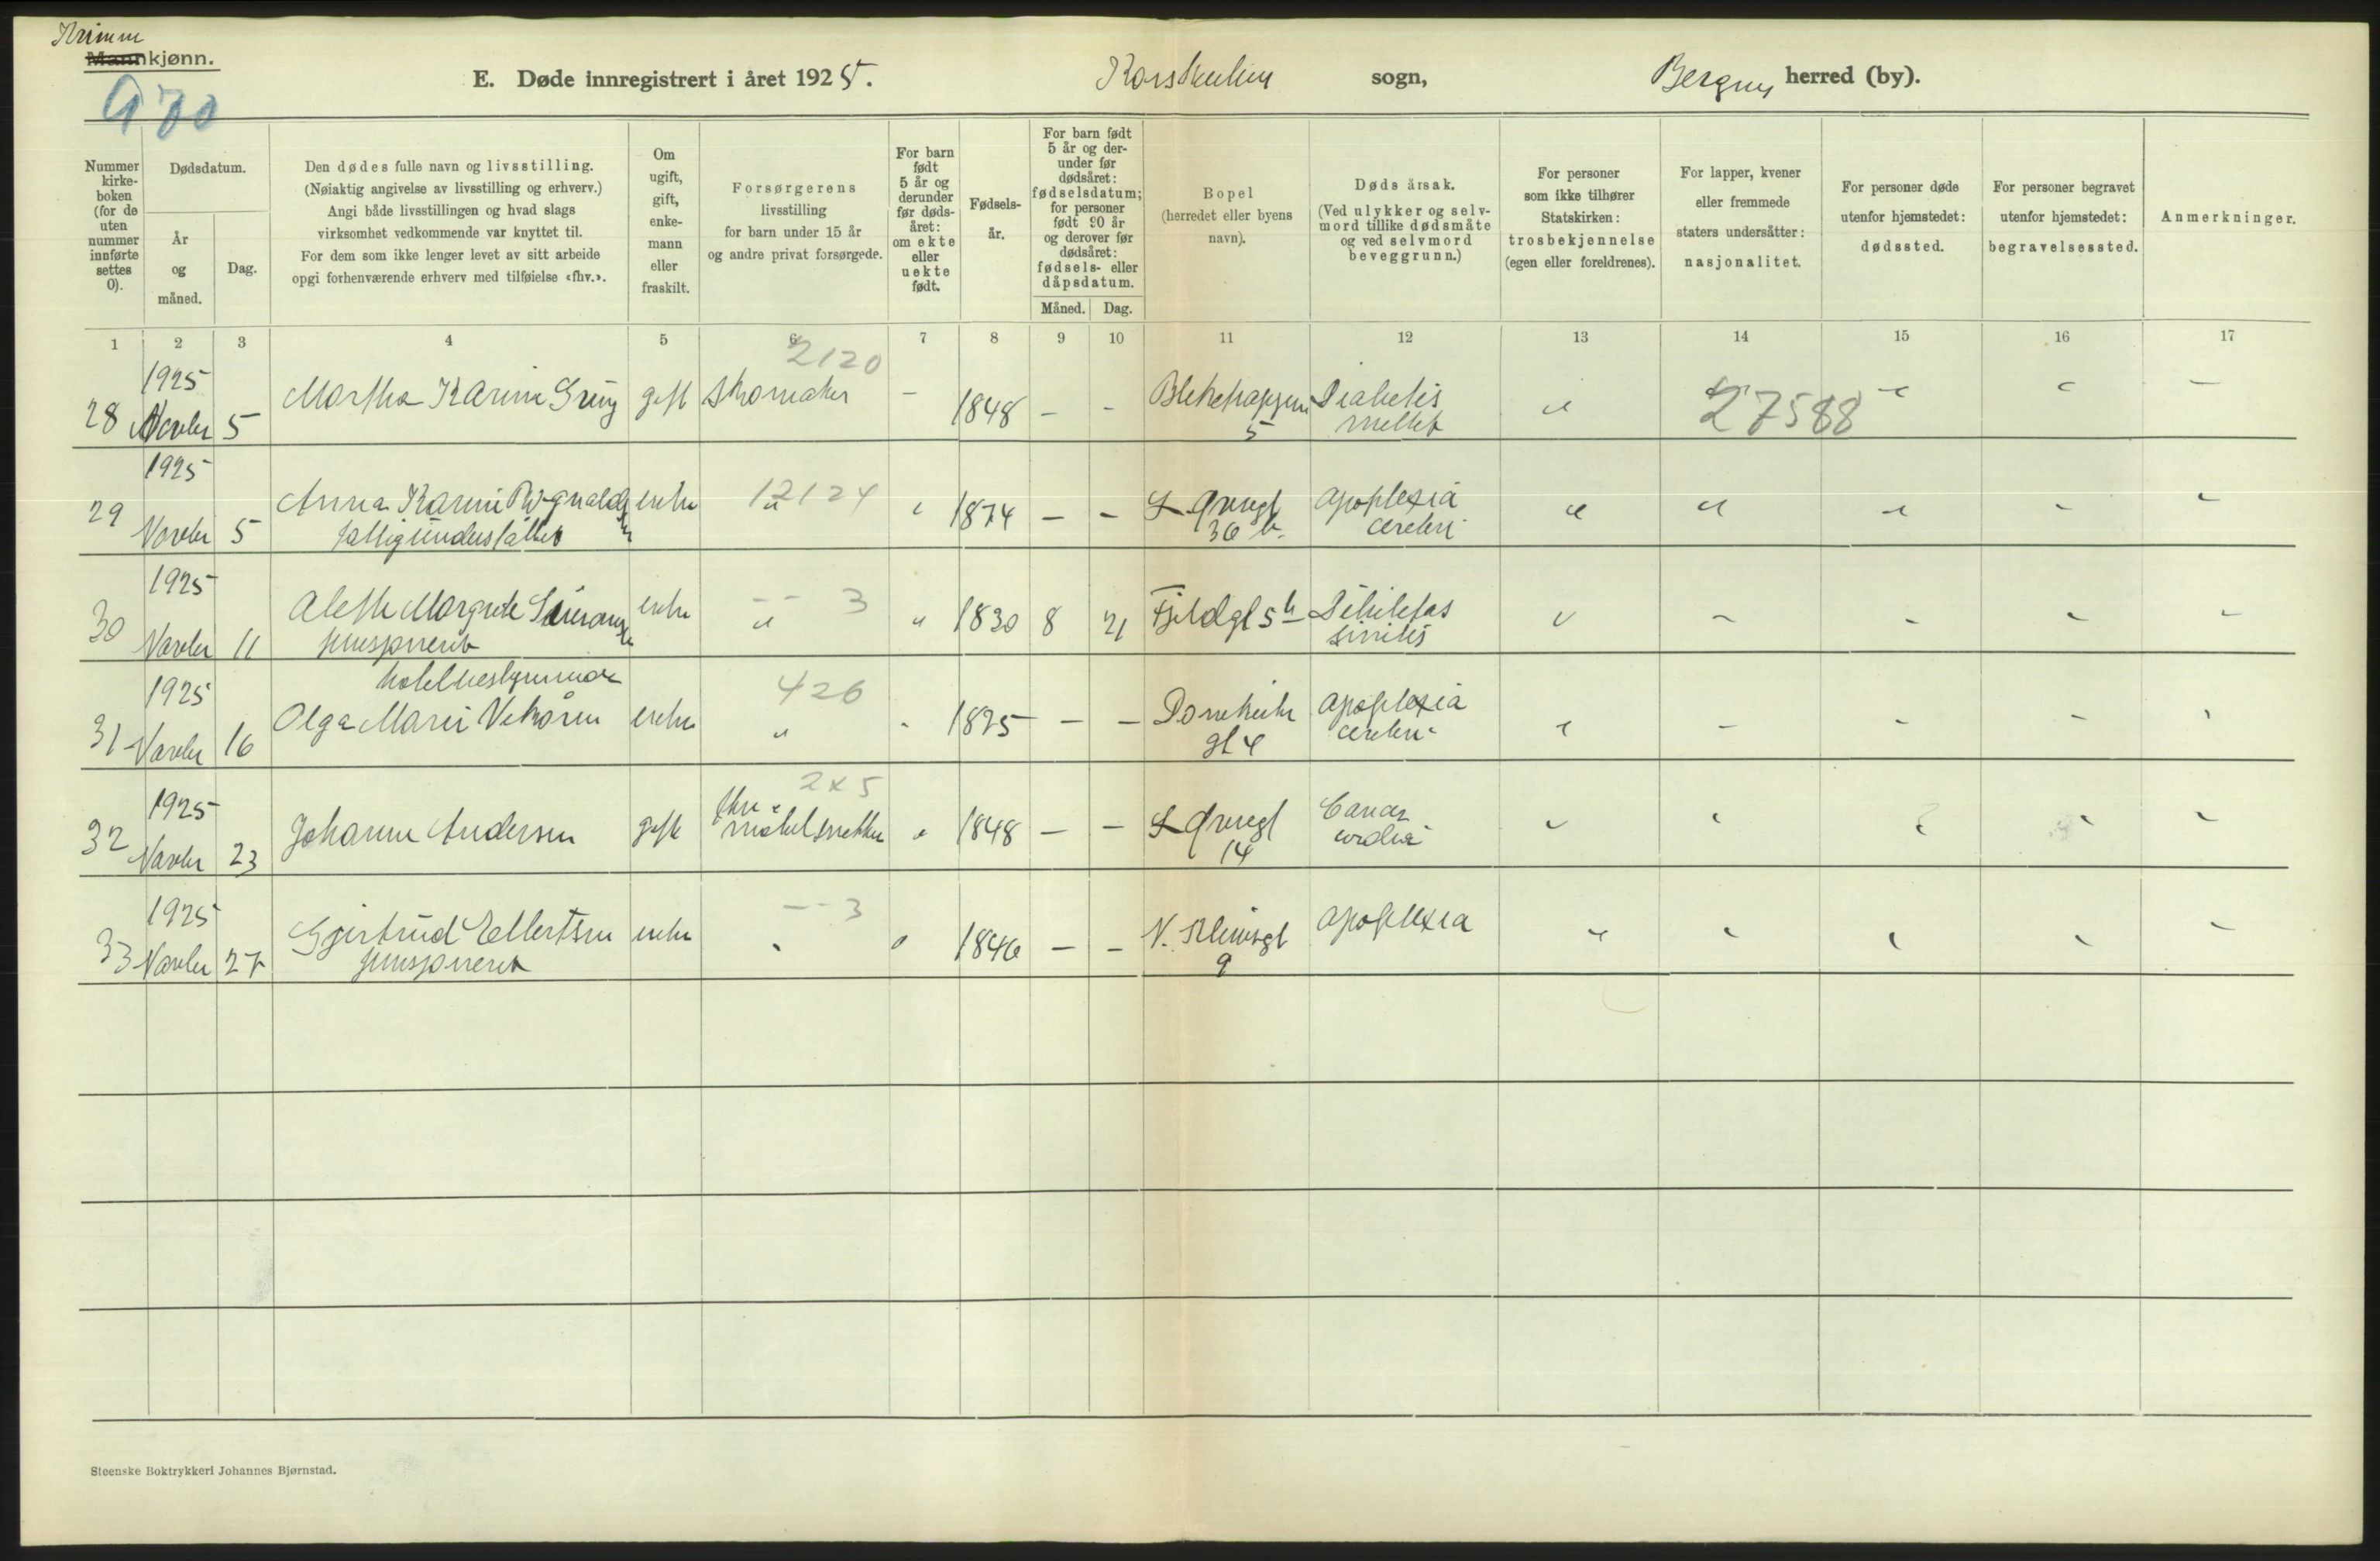 Kvinne
Mannkjønn.
E. Døde innregistrert i året 1925.
Korskirken sogn,
Bergen herred (by).
970
Nummer kirkeboken (for de uten nummer innførte settes 0).
Dødsdatum.
År og måned.
Dag.
Den dødes fulle navn og livsstilling.
(Nøiaktig angivelse av livsstilling og erhverv.)
Angi både livsstillingen og hvad slags
virksomhet vedkommende var knyttet til.
For dem som ikke lenger levet av sitt arbeide
opgi forhenværende erhverv med tilføielse «fhv.».
Om ugift, gift, enkemann eller fraskilt.
Forsørgerens
livsstilling
for barn under 15 år
og andre privat forsørgede.
For barn født 5 år og derunder før dødsåret: om ekte eller uekte født.
Fødselsår.
For barn født 5 år og derunder før dødsåret: fødselsdatum; for personer født 90 år og derover før dødsåret: fødsels- eller dåpsdatum.
Måned. Dag.
Bopel
(herredet eller byens
navn).
Døds årsak.
(Ved ulykker og selvmord tillike dødsmåte og ved selvmord beveggrunn.)
For personer
som ikke tilhører
Statskirken:
trosbekjennelse
(egen eller foreldrenes).
For lapper, kvener
eller fremmede
staters undersåtter:
nasjonalitet.
For personer døde
utenfor hjemstedet:
dødssted.
For personer begravet
utenfor hjemstedet:
begravelsessted.
Anmerkninger.
1 2 3 4 5 6 7 8 9 10 11 12 13 14 15 16 17
2120
28 1925 Novbr 5 Martha Karine gift skomaker - 1848 - - 5 Diabetes mellit " 27588 " " -
29 1925 Novbr 5 Anna Karine Rognaldsen fattigunderstøttet enke " 12124 " 1874 - - 36 b. apoplexia cerebri " " " - "
30 1925 Novbr 11 Aleth Margrete enke " -- 3 " 1830 8 21 Fjeldgt 5 b Debilitas senilis " - - - -
hotelbestyrerinde
31 1925 Novbr 16 Olga Marie enke " 426 " 1825 - - Domkirke gt 4 apoplexia cerebri " - - - '
32 1925 Novbr 23 Johanne Andersen gift fhv. møbelsnekker 2x5 " 1848 - - 14 Cancer " " " " "
33 1925 Novbr 27 Gjertrud Ellertsen pensioneret enke " -- 3 " 1846 - - N. 9 apoplexia " " " " "
Steenske Boktrykkeri Johannes Bjørnstad.